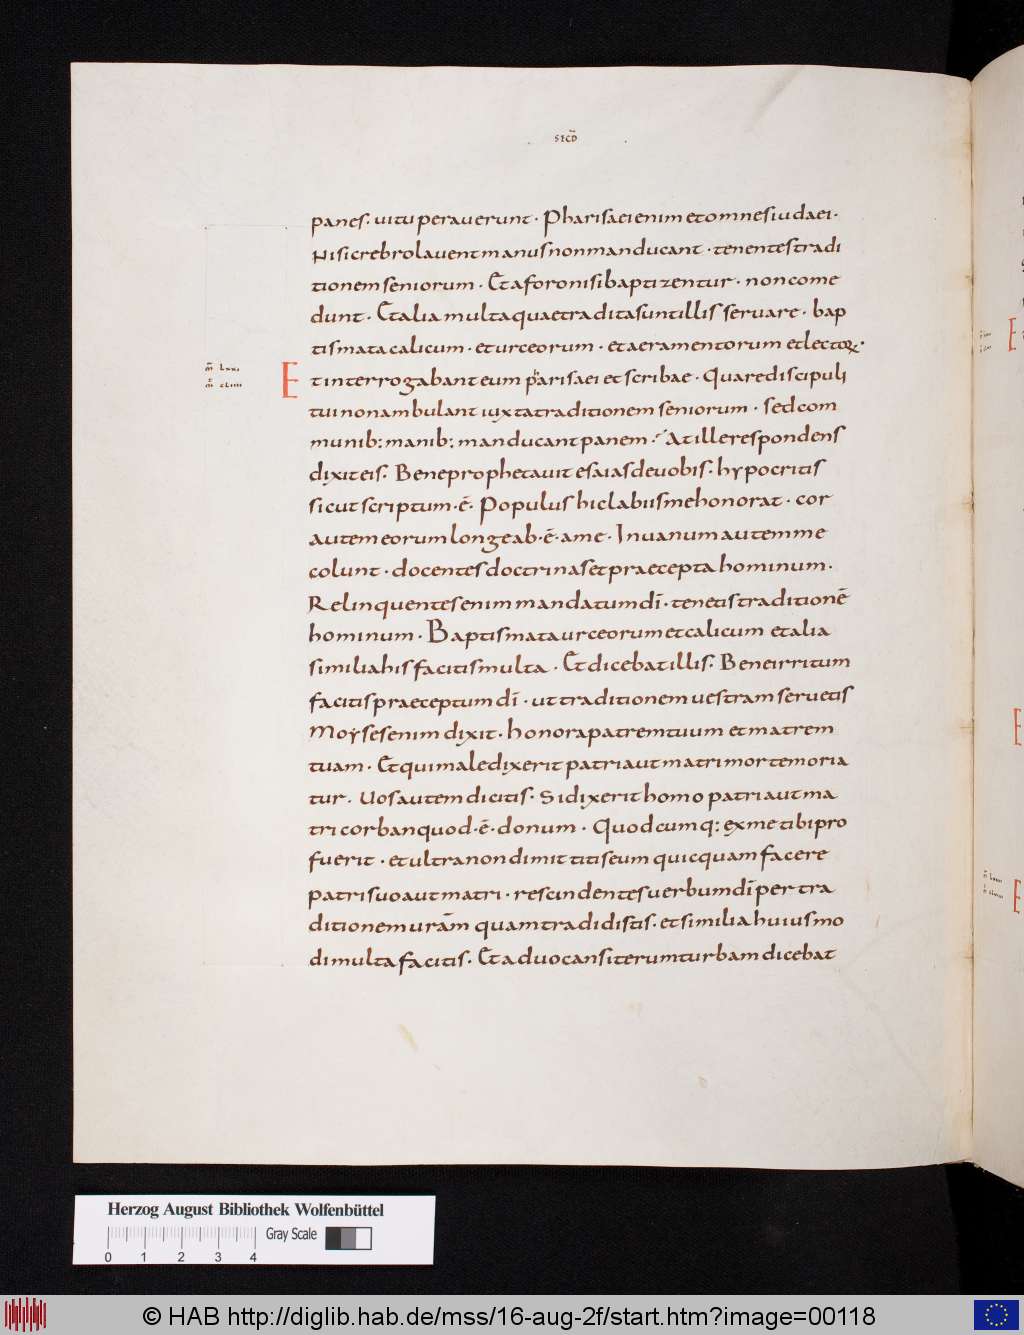 SECD̄
panes. uituperauerunt. Pharisaei enim et omnes iudaei.
Nisi crebro lauent manus non manducant. tenentes tradi
tionem seniorum. Et a foro nisi baptizentur. non come
dunt. Et alia multa quae tradita sunt illis seruare. bap
tismata calicum. et urceorum. et aeramentorum et lectoꝝ.
m̄ lxxi
Et interrogabant eum pharisaei et scribae. Quare discipuli
m̄ cliiii
tui non ambulant iuxta traditionem seniorum. sed com
munib; manib; manducant panem. At ille respondens
dixit eis. Bene prophetauit esaias de uobis. hypocritis
sicut scriptum.ē. Populus hic labiis me honorat. cor
autem eorum longe ab.ē. a me. In uanum autem me
colunt. docentes doctrinas et praecepta hominum.
Relinquentes enim mandatum dī. tenetis traditionē
hominum. Baptismata urceorum et calicum et alia
similia his facitis multa. Et dicebat illis. Bene irritum
facitis praeceptum dī. ut traditionem uestram seruetis
Moyses enim dixit. honora patrem tuum et matrem
tuam. Et qui maledixerit patri aut matri morte moria
tur. Uos autem dicitis. Si dixerit homo patri aut ma
tri corban quod.ē. donum. Quodcumq: ex me tibi pro
fuerit. et ultra non dimittitis eum quicquam facere
patri suo aut matri. rescindentes uerbum dī per tra
ditionem urām quam tradidistis. et similia huiusmo
di multa facitis. Et aduocans iterum turbam dicebat
Herzog August Bibliothek Wolfenbüttel
Gray Scale
0 1 2 3 4
© HAB http://diglib.hab.de/mss/16-aug-2f/start.htm?image=00118